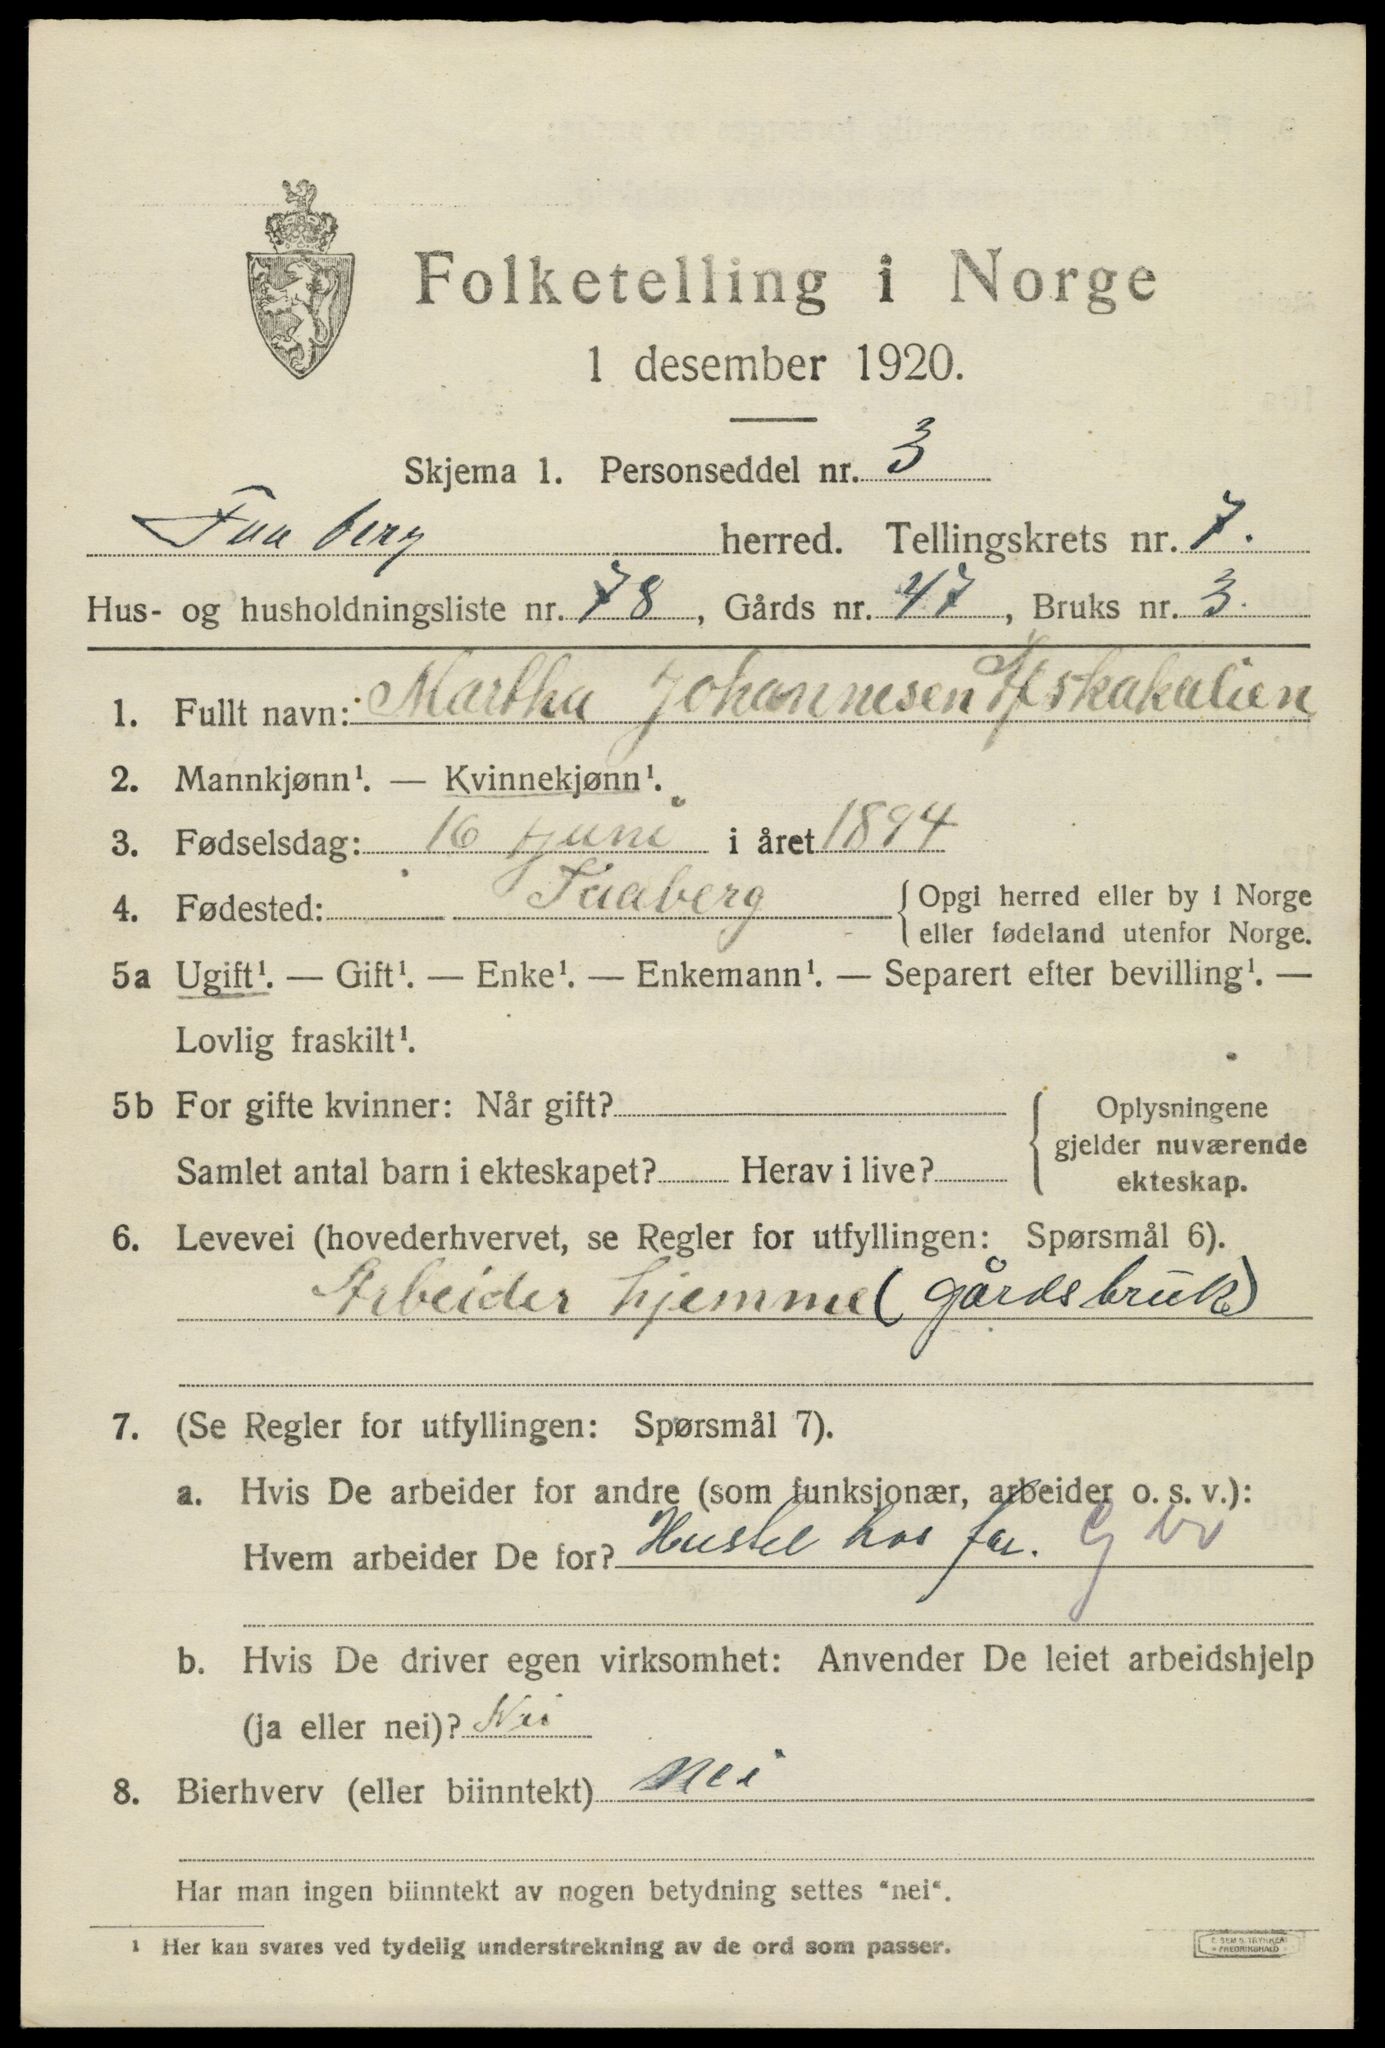 Folketelling i Norge
1 desember 1920.
Skjema 1. Personseddel nr. 3
Faaberg herred. Tellingskrets nr. 7.
Hus- og husholdningsliste nr. 78, Gårds nr. 47, Bruks nr. 3.
1. Fullt navn: Martha Johannesen
2. Mannkjønn¹. — Kvinnekjønn¹.
3. Fødselsdag: 16 juni i året 1894
4. Fødested: Faaberg { Opgi herred eller by i Norge
eller fødeland utenfor Norge.
5a Ugift¹. — Gift¹. — Enke¹. — Enkemann¹. — Separert efter bevilling¹. —
Lovlig fraskilt¹.
5b For gifte kvinner: Når gift? { Oplysningene
gjelder nuværende
Samlet antal barn i ekteskapet? Herav i live? ekteskap.
6. Levevei (hovederhvervet, se Regler for utfyllingen: Spørsmål 6).
Arbeider hjemme (gårdsbruk)
7. (Se Regler for utfyllingen: Spørsmål 7).
a. Hvis De arbeider for andre (som funksjonær, arbeider o. s. v.):
Hvem arbeider De for? hos far.
b. Hvis De driver egen virksomhet: Anvender De leiet arbeidshjelp
(ja eller nei)? Nei
8. Bierhverv (eller biinntekt) nei
Har man ingen biinntekt av nogen betydning settes "nei".
¹ Her kan svares ved tydelig understrekning av de ord som passer.
FREDRIKSHALD